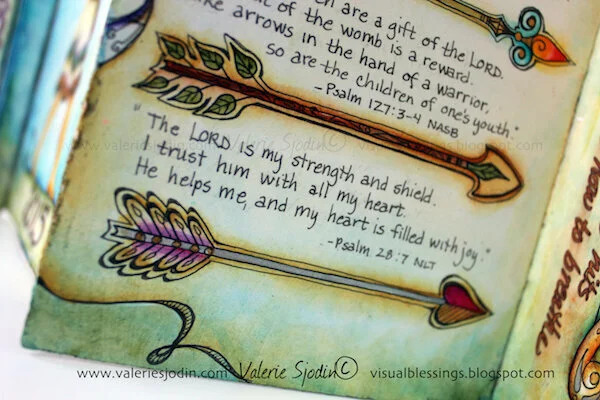 are a gift of the LORD.
of the womb is a reward.
arrows in the hand of a warrior,
so are the children of one's youth."
-Psalm 127:3-4 NASB
"The LORD is my strength and shield.
I trust him with all my heart.
He helps me, and my heart is filled with joy."
-Psalm 28:7 NLT
to breathe
www.valeriesjodin.com Valerie Sjodin© visualblessings.blogspot.com